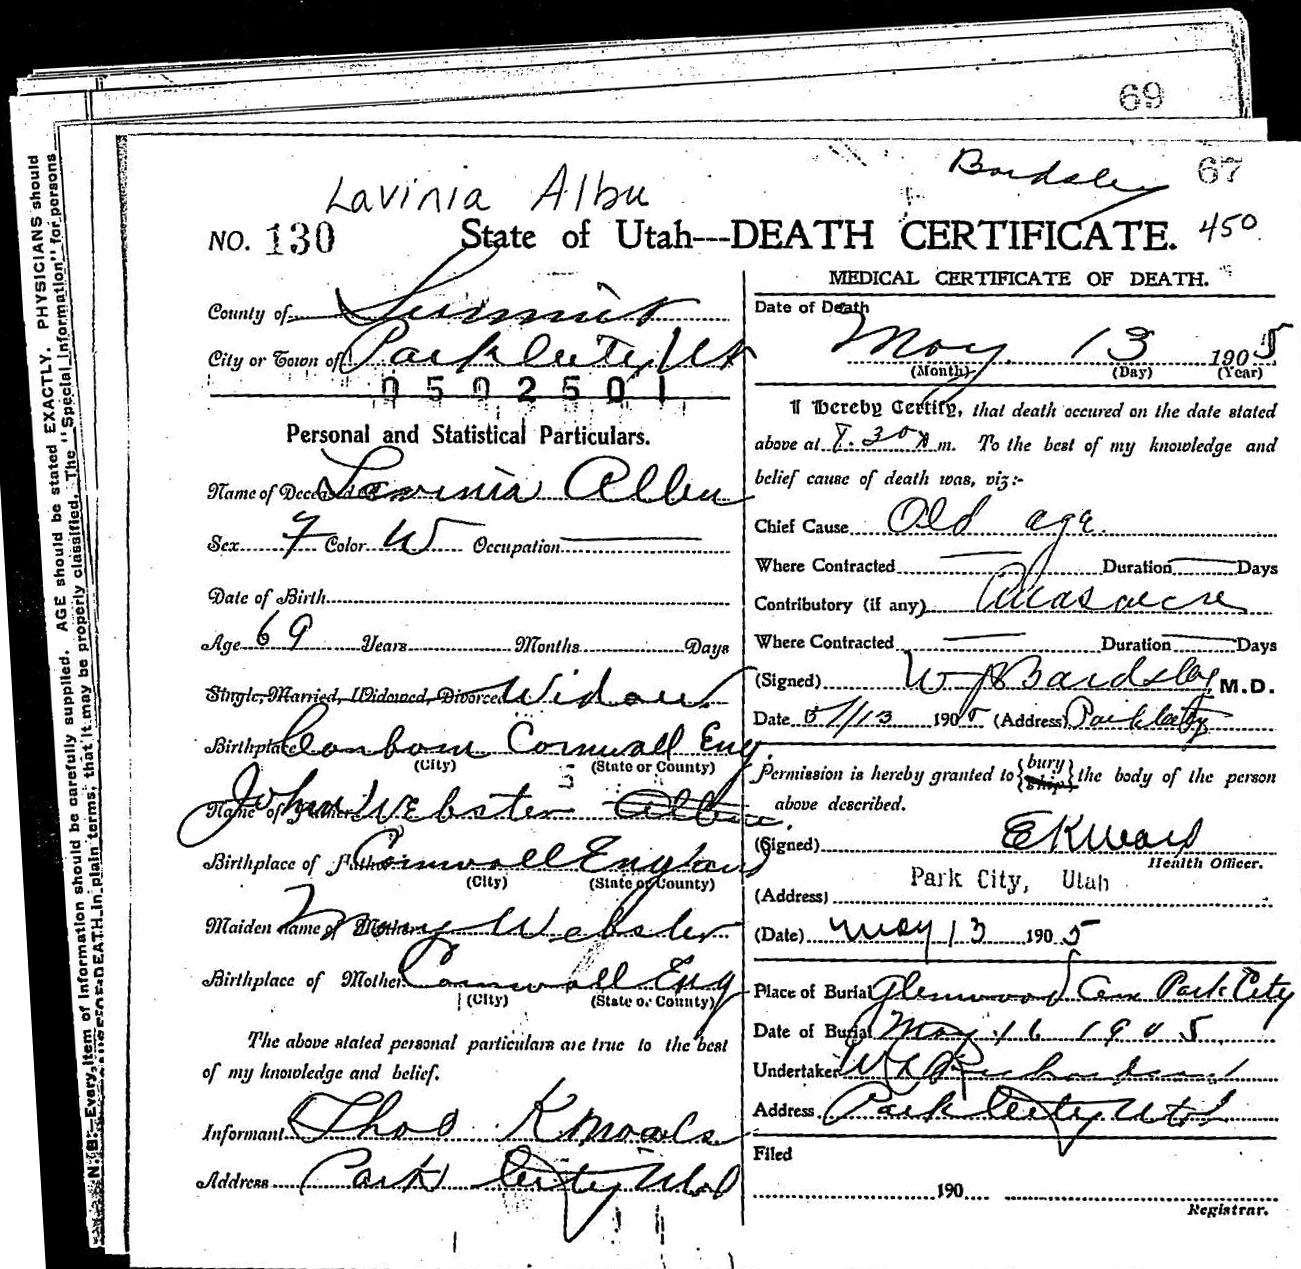 69
67
Bardsley
Lavinia Albu
450
NO. 130 State of Utah---DEATH CERTIFICATE.
County of Summit
City or Town of Park City, Ut
0502501
Personal and Statistical Particulars.
Name of Deceased Lavinia Allen
Sex F Color W Occupation
Date of Birth
Age 69 Years Months Days
Single, Married, Widowed, Divorced Widow
Birthplace Cornwall Eng
(City) (State or County)
Name of Father John Webster
Birthplace of Father Cornwall England
(City) (State or County)
Maiden name of Mother Mary Webster
Birthplace of Mother Cornwall Eng
(City) (State or County)
The above stated personal particulars are true to the best
of my knowledge and belief.
Informant Thos K
Address Park City Utah
MEDICAL CERTIFICATE OF DEATH.
Date of Death
May 13 1905
(Month) (Day) (Year)
I Hereby Certify, that death occured on the date stated
above at 8.30 m. To the best of my knowledge and
belief cause of death was, viz:-
Chief Cause Old age.
Where Contracted Duration Days
Contributory (if any)
Where Contracted Duration Days
(Signed) W J Bardsley M.D.
Date 5/13 1905 (Address) Park City
Permission is hereby granted to {bury ship} the body of the person
above described.
(Signed) E K Ward
Health Officer.
(Address) Park City, Utah
(Date) May 13 1905
Place of Burial Glenwood Cem Park City
Date of Burial May 16 1905
Undertaker W Richardson
Address Park City Utah
Filed
190
Registrar.
N. B.—Every item of information should be carefully supplied. AGE should be stated EXACTLY. PHYSICIANS should
CAUSE OF DEATH in plain terms, that it may be properly classified. The "Special Information" for persons